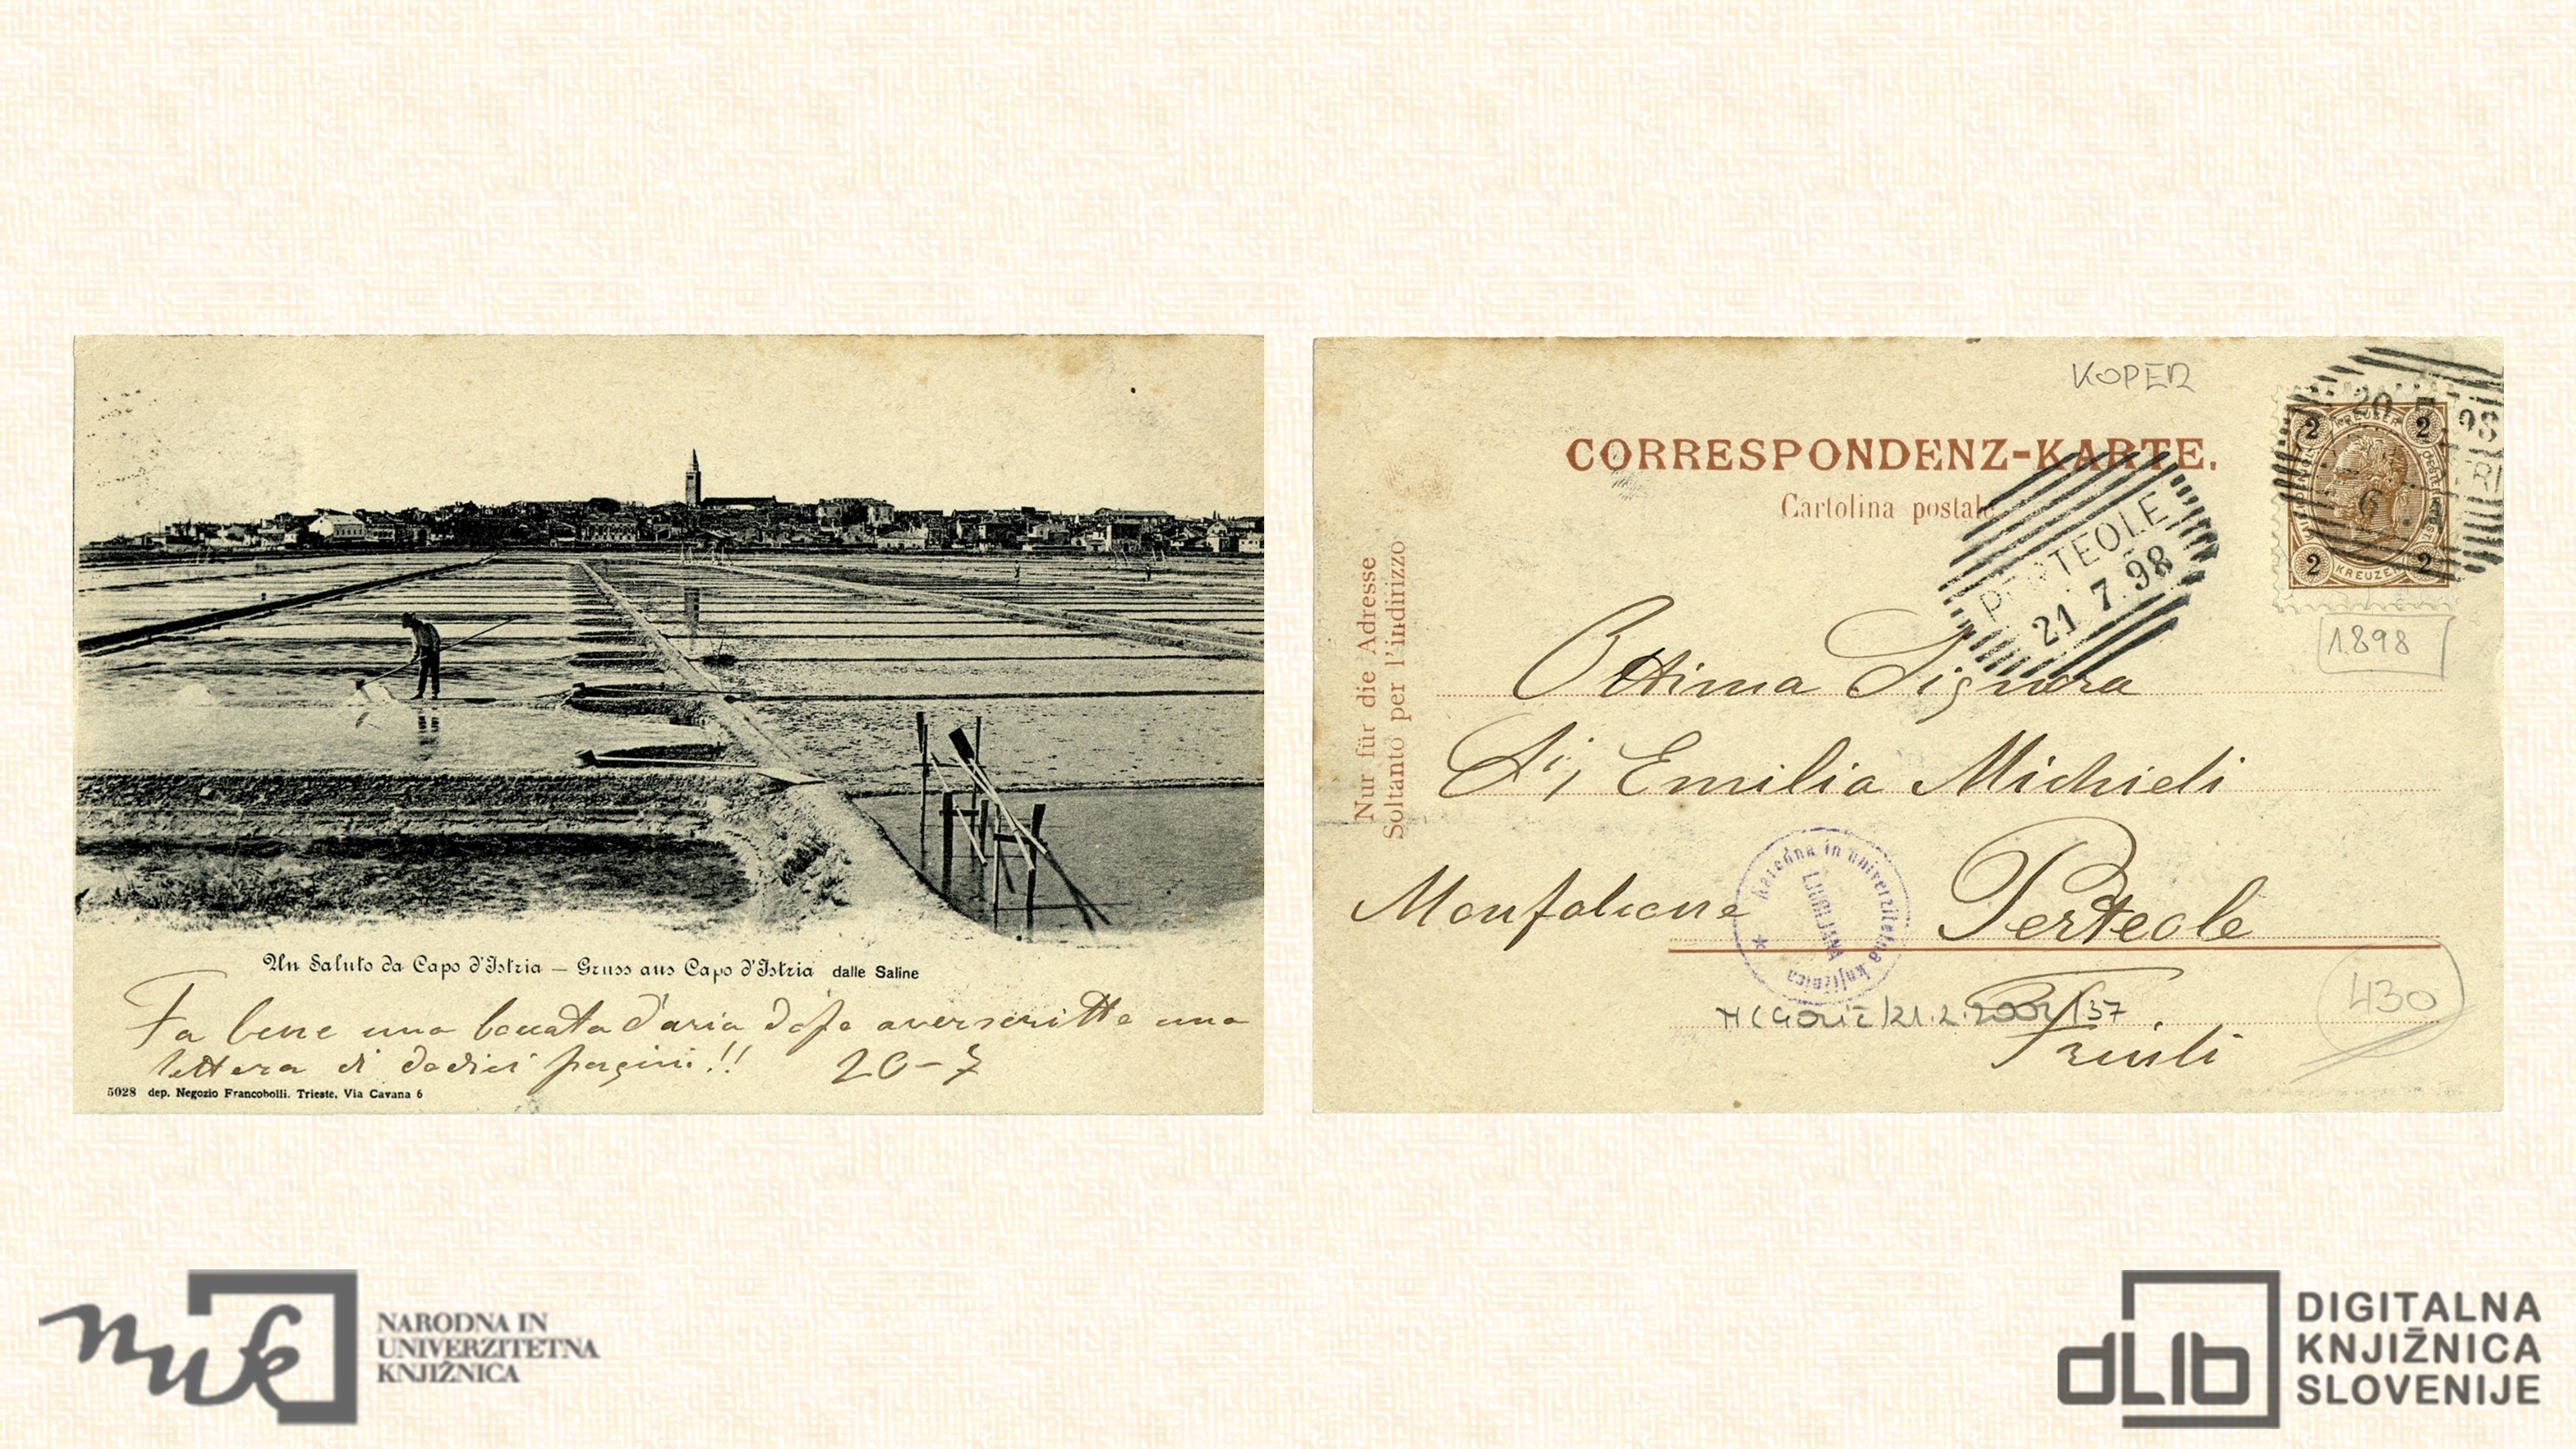 Un Saluto da Capo d'Istria – Gruss aus Capo d'Istria dalle Saline
Fa bene una boccata d'aria dopo aver scritto una
lettera di dodici pagine!! 20-7
5028 dep. Negozio Francobolli. Trieste, Via Cavana 6
KOPER
CORRESPONDENZ-KARTE.
Cartolina postale
Nur für die Adresse
Soltanto per l'indirizzo
PERTEOLE
21 7.98
20 7 98
6
2 KREUZER 2
2 KREUZER 2
1898
Ottima Signora
Emilia Michieli
Monfalcone Perteole
Narodna in univerzitetna knjižnica
LJUBLJANA
21.2.2002/37
430
Friuli
nuk
NARODNA IN
UNIVERZITETNA
KNJIŽNICA
dLib
DIGITALNA
KNJIŽNICA
SLOVENIJE